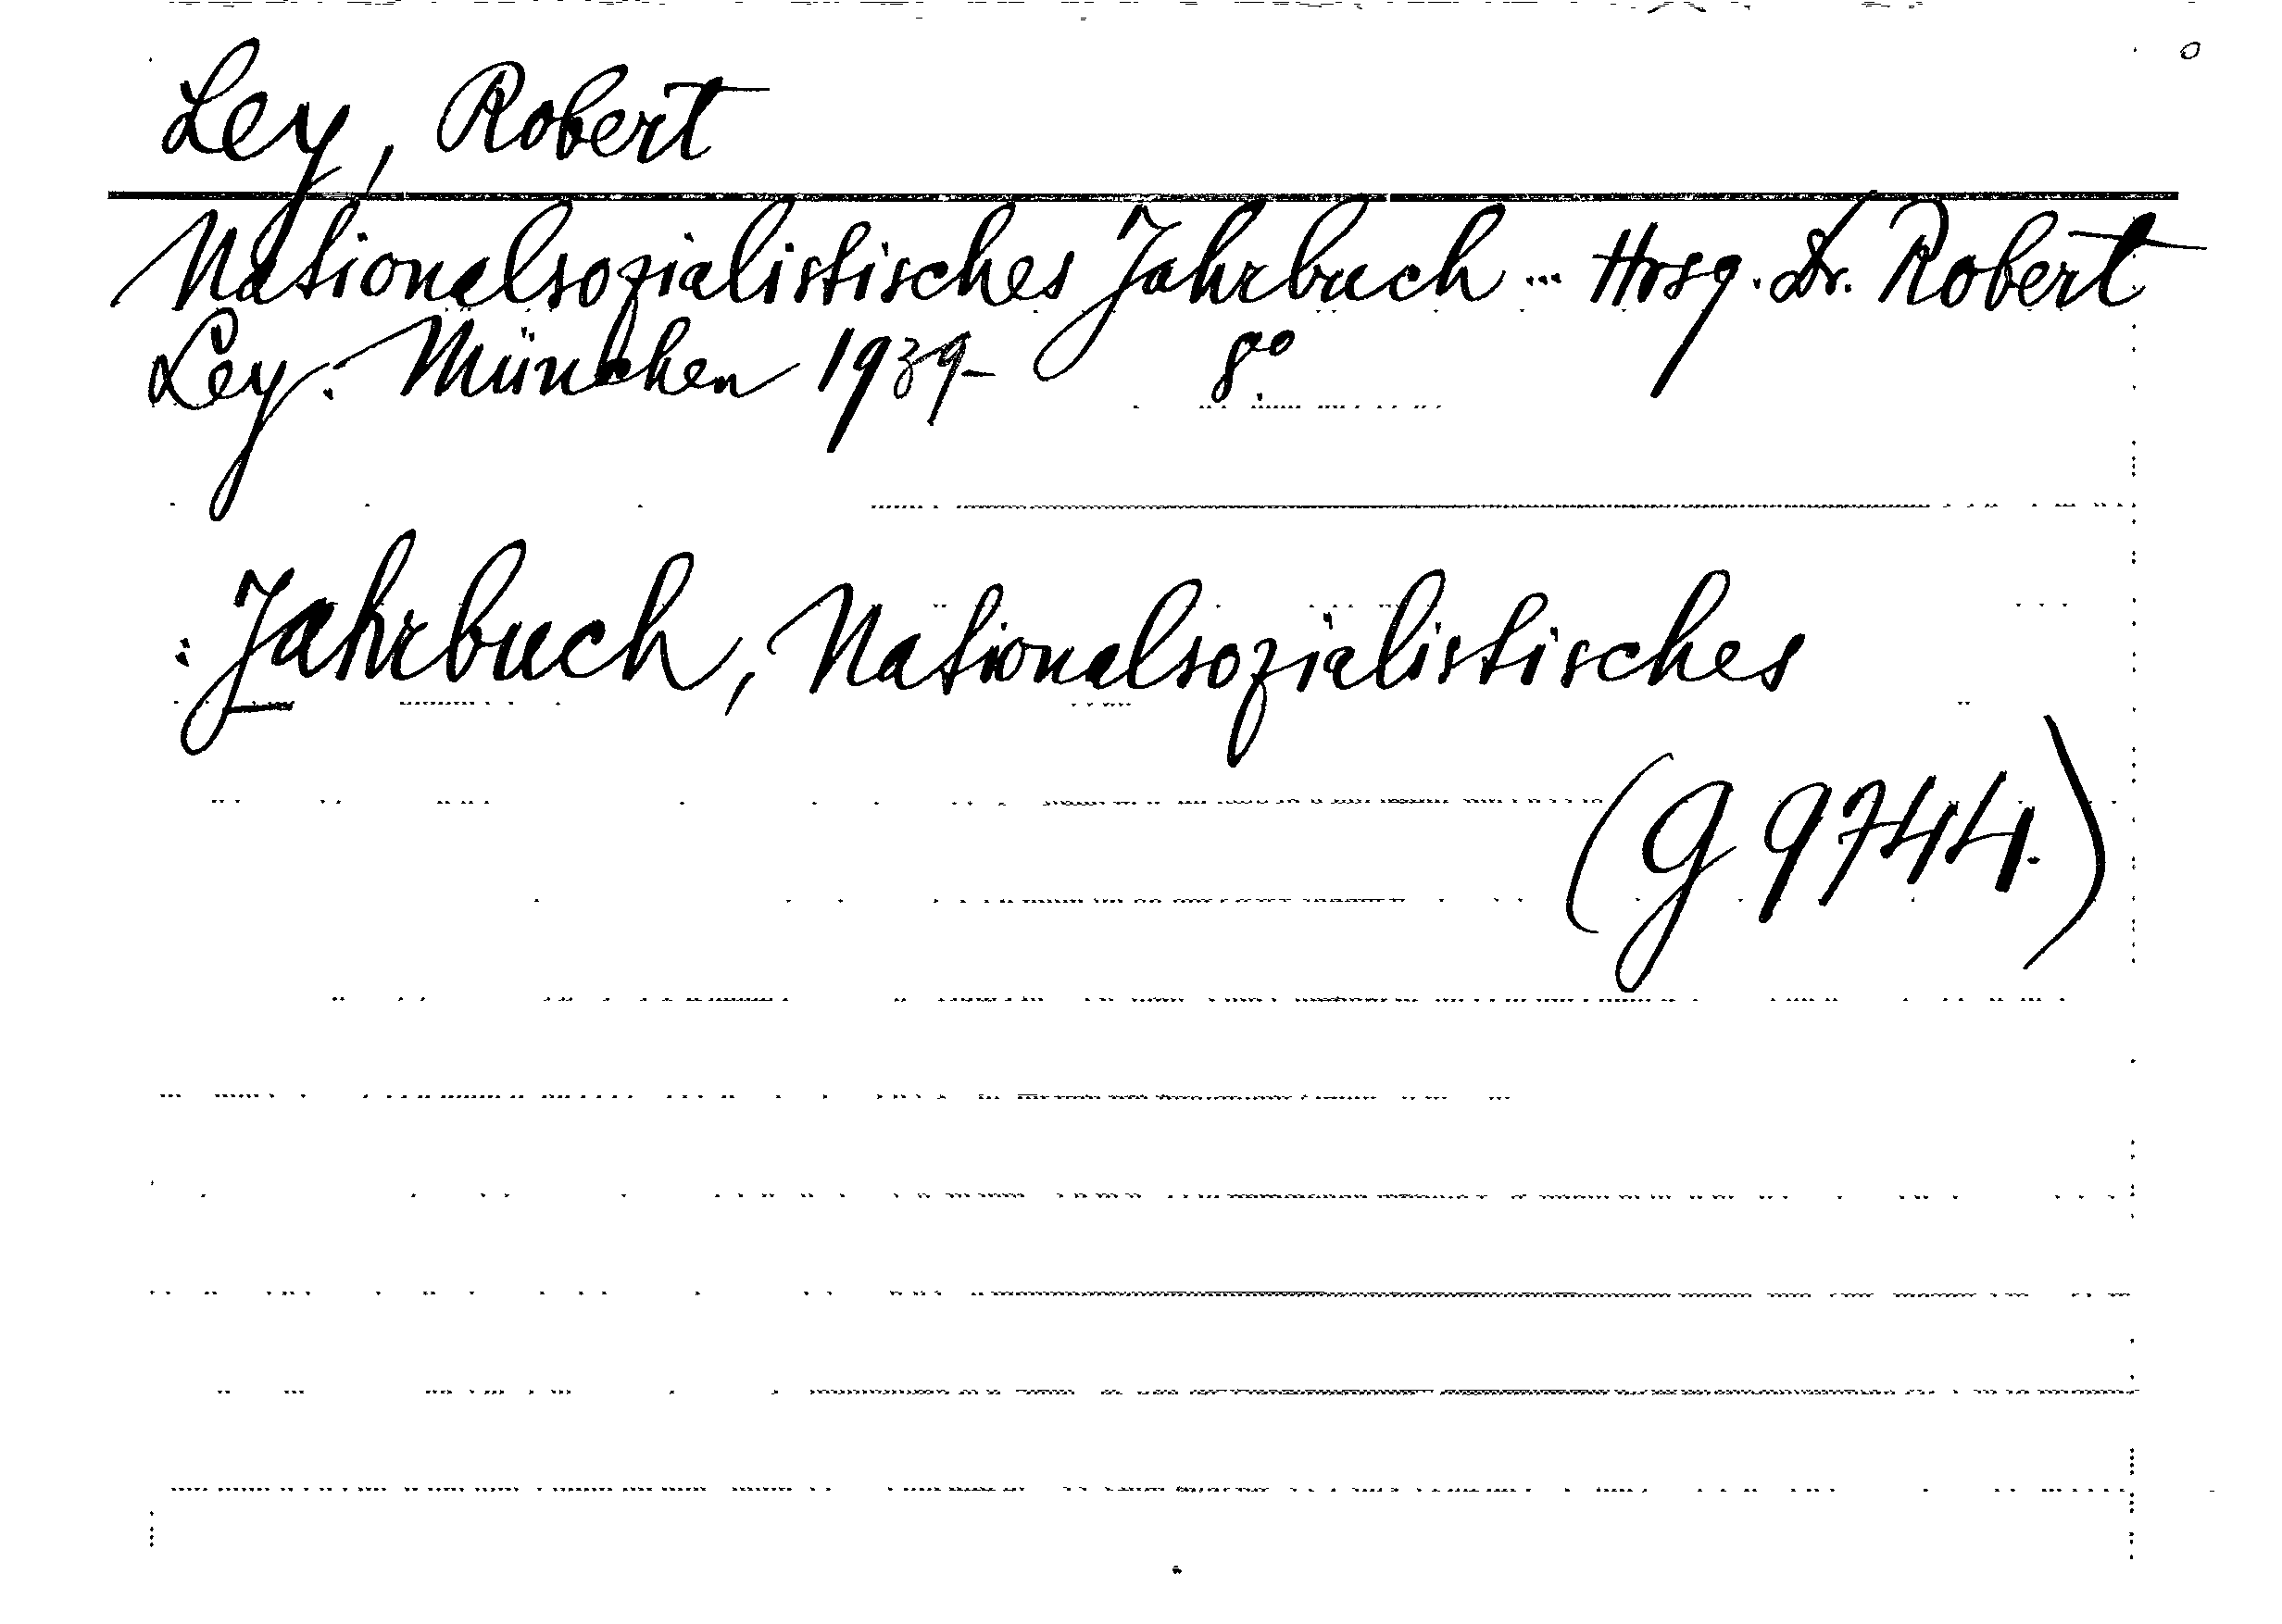 Ley, Robert
Nationalsozialistisches Jahrbuch ... Hrsg. Dr. Robert
Ley. München 1939- 8°.
: Jahrbuch, Nationalsozialistisches
(G 9744.)